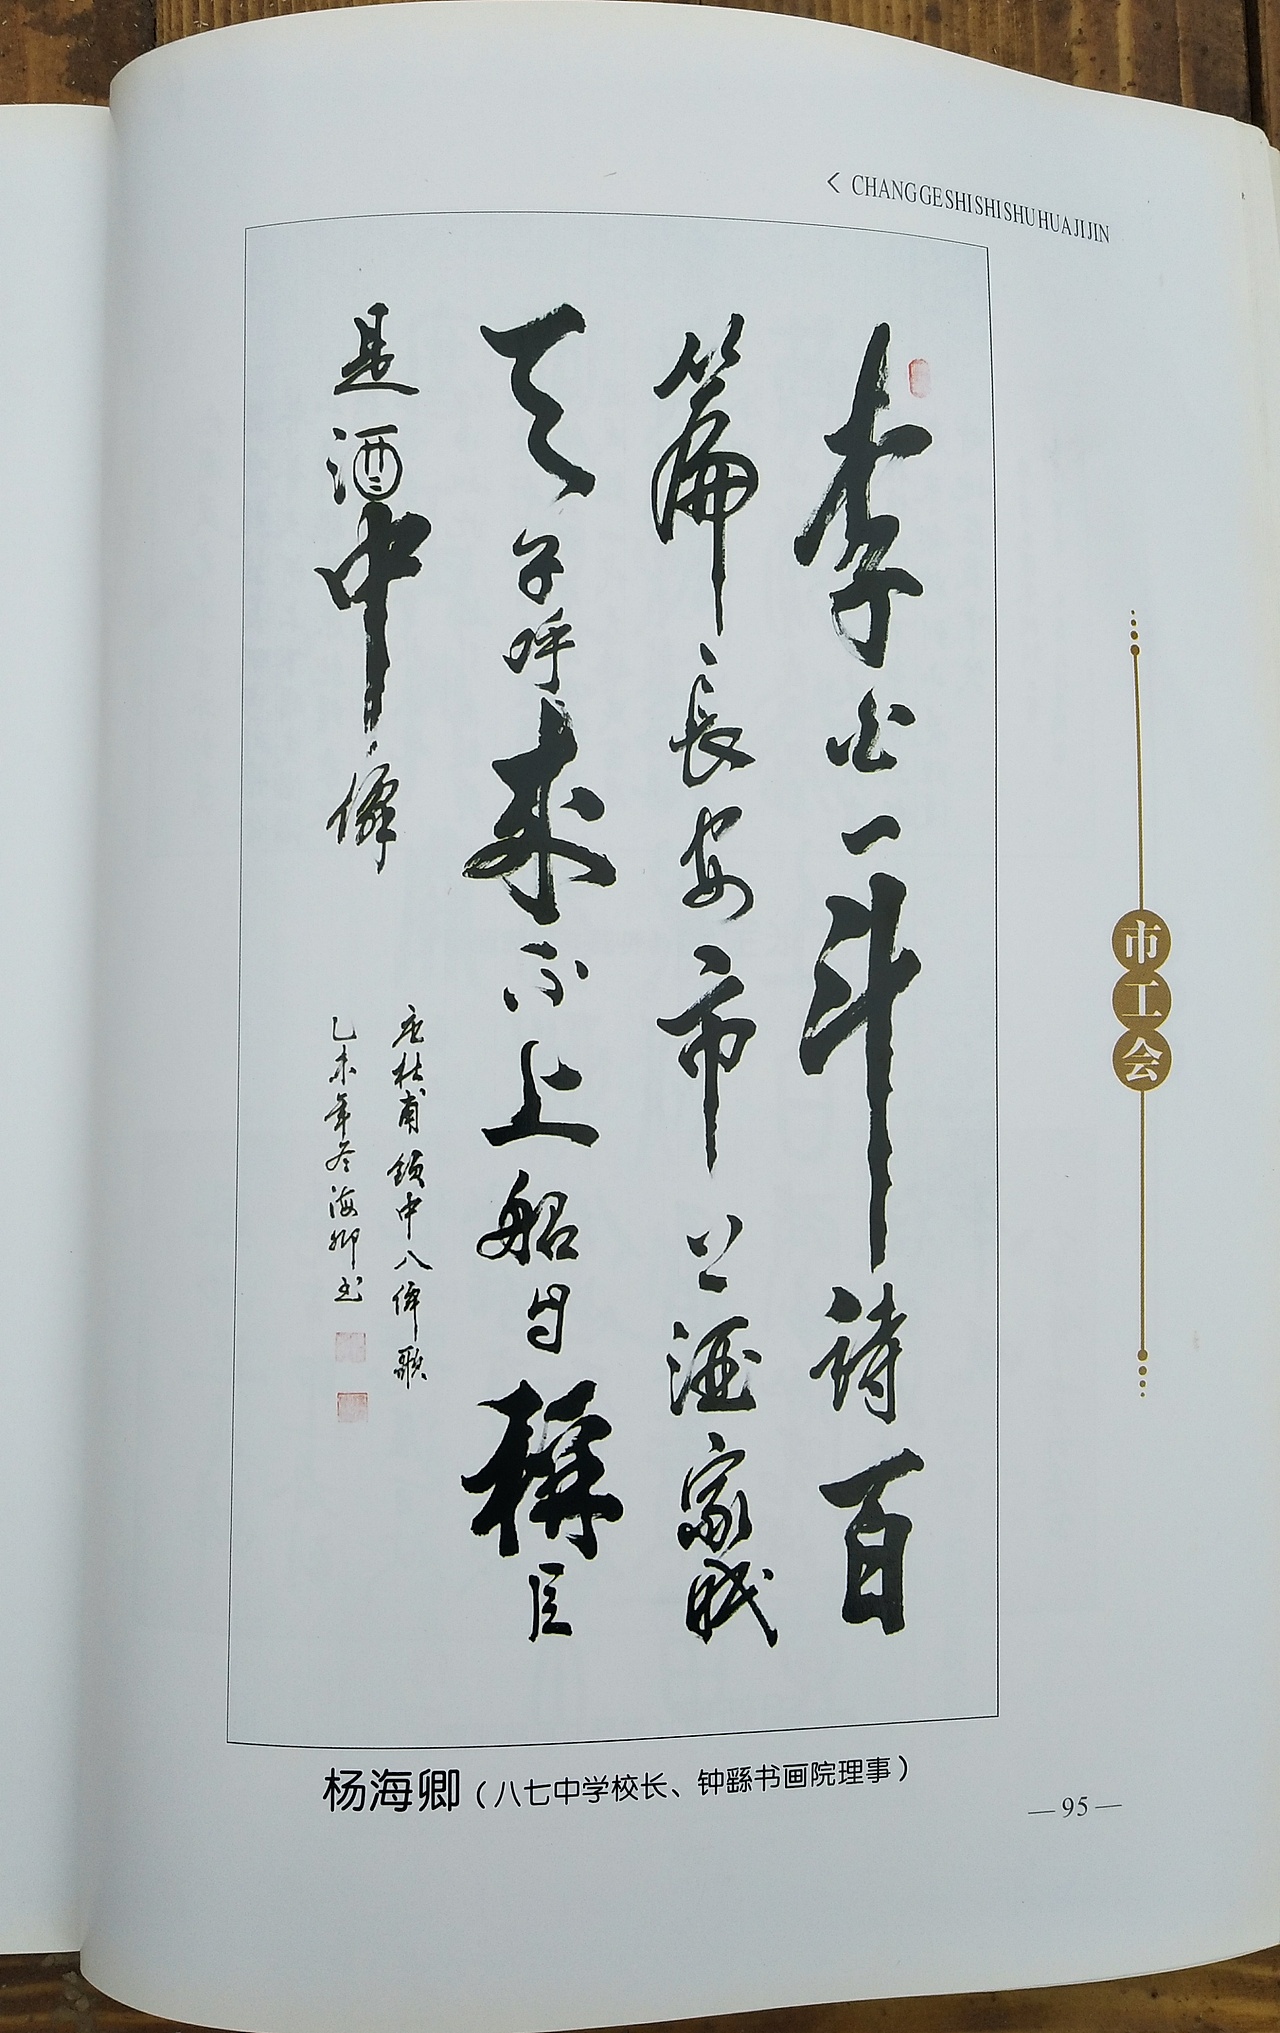 < CHANG GE SHI SHI SHU HUA JI JIN
李白一斗诗百
篇長安市上酒家眠
天子呼来不上船自稱臣
是酒中僊
唐杜甫飲中八僊歌
乙未年冬海卿书
市工会
杨海卿（八七中学校长、钟繇书画院理事）
—95—